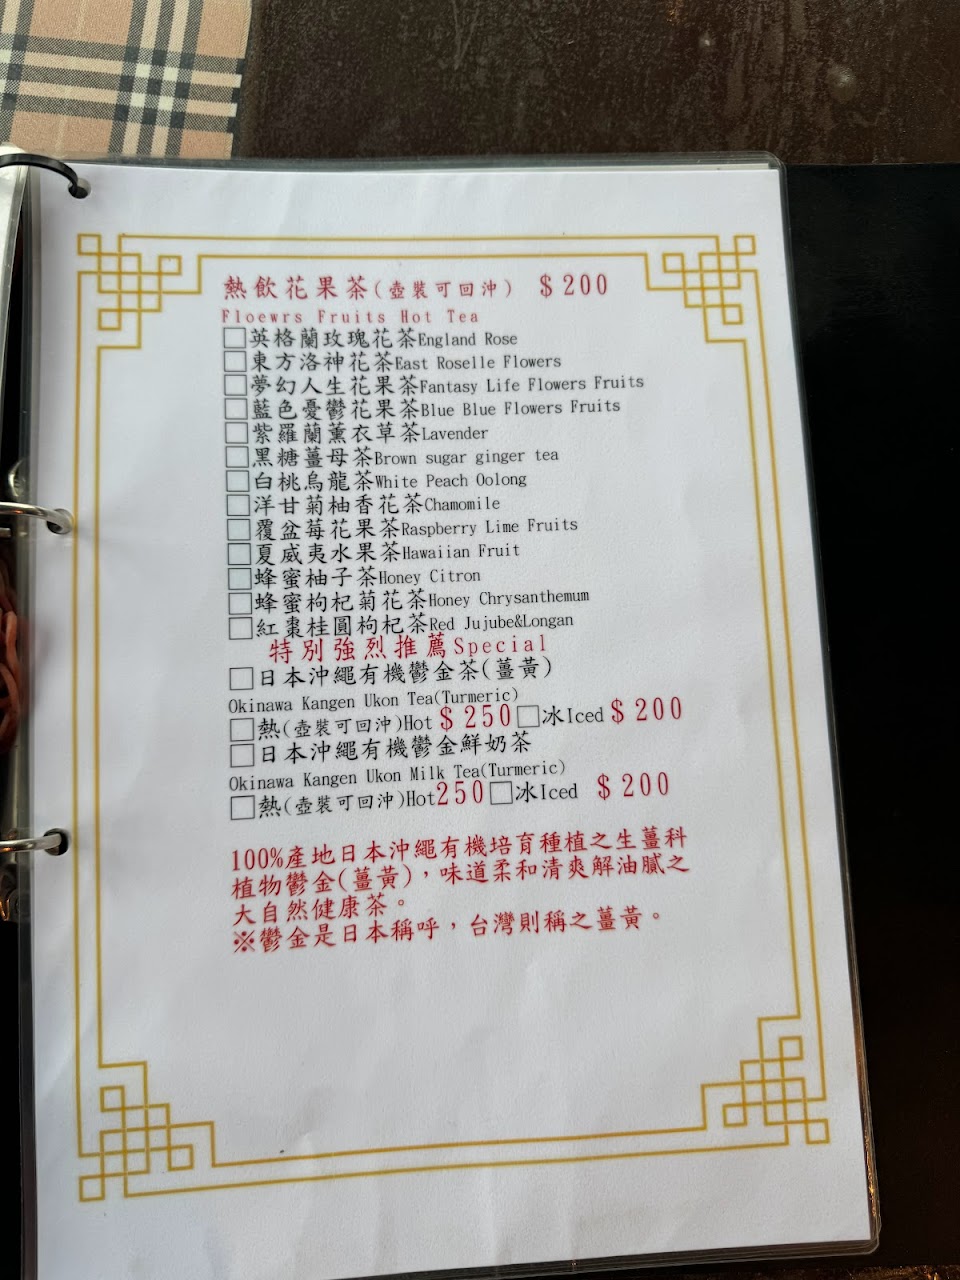 熱飲花果茶(壺裝可回沖) $200
Floewrs Fruits Hot Tea
□英格蘭玫瑰花茶England Rose
□東方洛神花茶East Roselle Flowers
□夢幻人生花果茶Fantasy Life Flowers Fruits
□藍色憂鬱花果茶Blue Blue Flowers Fruits
□紫羅蘭薰衣草茶Lavender
□黑糖薑母茶Brown sugar ginger tea
□白桃烏龍茶White Peach Oolong
□洋甘菊柚香花茶Chamomile
□覆盆莓花果茶Raspberry Lime Fruits
□夏威夷水果茶Hawaiian Fruit
□蜂蜜柚子茶Honey Citron
□蜂蜜枸杞菊花茶Honey Chrysanthemum
□紅棗桂圓枸杞茶Red Jujube&Longan
特別強烈推薦Special
□日本沖繩有機鬱金茶(薑黃)
Okinawa Kangen Ukon Tea(Turmeric)
□熱(壺裝可回沖)Hot $250□冰Iced $200
□日本沖繩有機鬱金鮮奶茶
Okinawa Kangen Ukon Milk Tea(Turmeric)
□熱(壺裝可回沖)Hot250□冰Iced $200
100%產地日本沖繩有機培育種植之生薑科
植物鬱金(薑黃)，味道柔和清爽解油膩之
大自然健康茶。
※鬱金是日本稱呼，台灣則稱之薑黃。